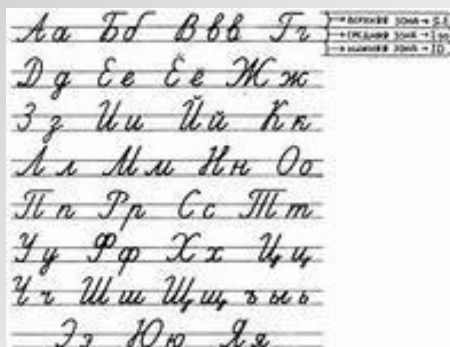 Аа Бб Ввв Гг
ВЕРХНЯЯ ЗОНА
СРЕДНЯЯ ЗОНА
НИЖНЯЯ ЗОНА
Дд Ее Ёё Жж
Зз Ии Йй Кк
Лл Мм Нн Оо
Пп Рр Сс Тт
Уу Фф Хх Цц
Чч Шш Щщ ъ ы ь
Ээ Юю Яя